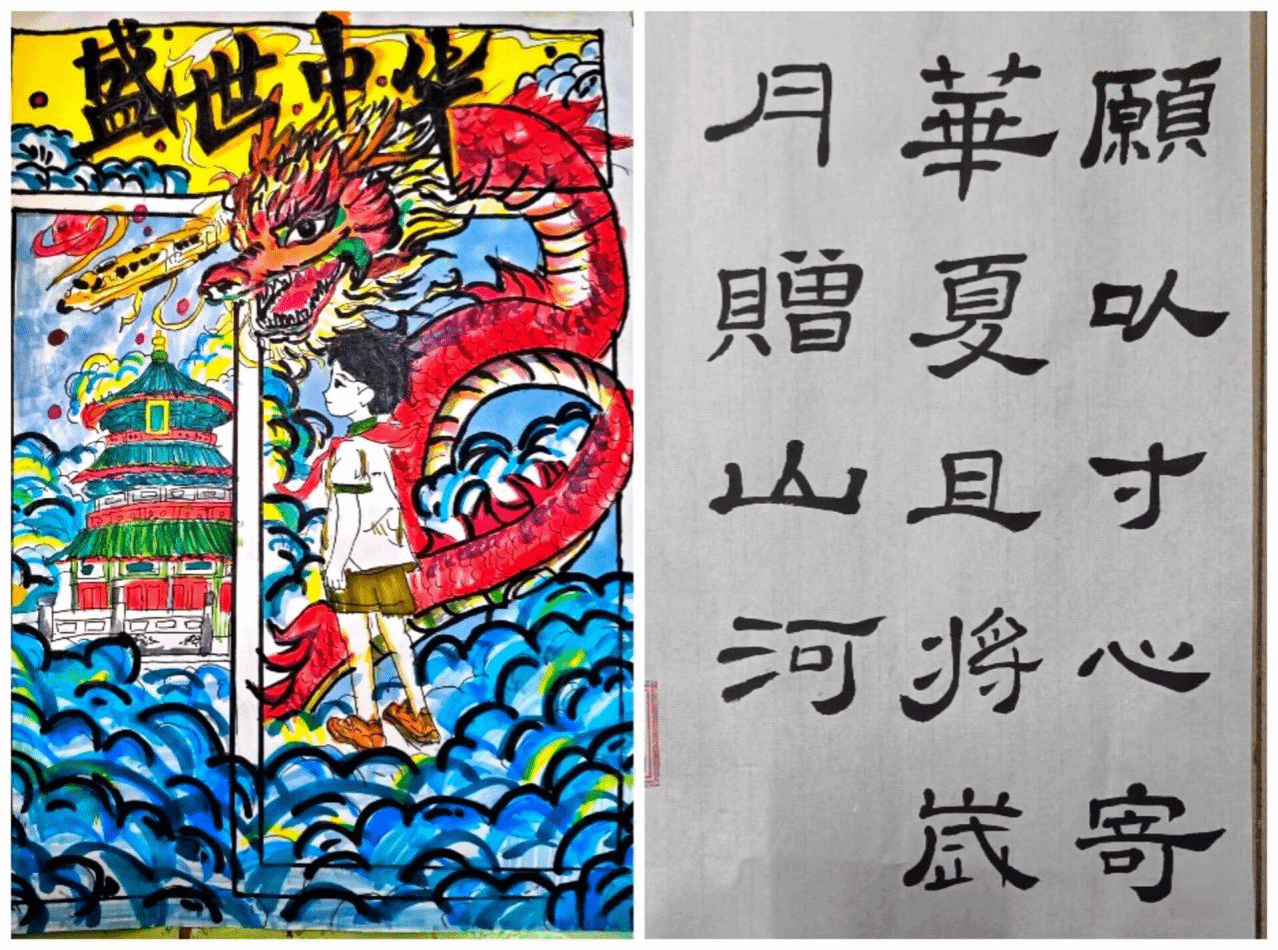 盛世中华
願以寸心寄
華夏且將歲
月贈山河